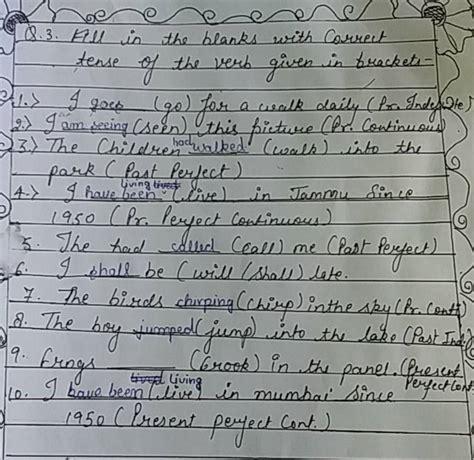 Q.3. Fill in the blanks with correct
tense of the verb given in brackets-
1.> I goes (go) for a walk daily (Pr. Indefinite)
2.> I am seeing (seen) this picture (Pr. Continuous)
3.> The children had walked (walk) into the
park (Past Perfect)
4.> I have been living lived (live) in Jammu Since
1950 (Pr. Perfect Continuous)
5. The had called (call) me (Past Perfect)
6. I shall be (will/shall) late.
7. The birds chirping (chirp) in the sky (Pr. Cont)
8. The boy jumped (jump) into the lake (Past Ind.)
9. Frngs ______ (Grook) in the panel. (Present
Perfect Cont.
10. I have been lived living (live) in mumbai since
1950 (Present perfect Cont.)